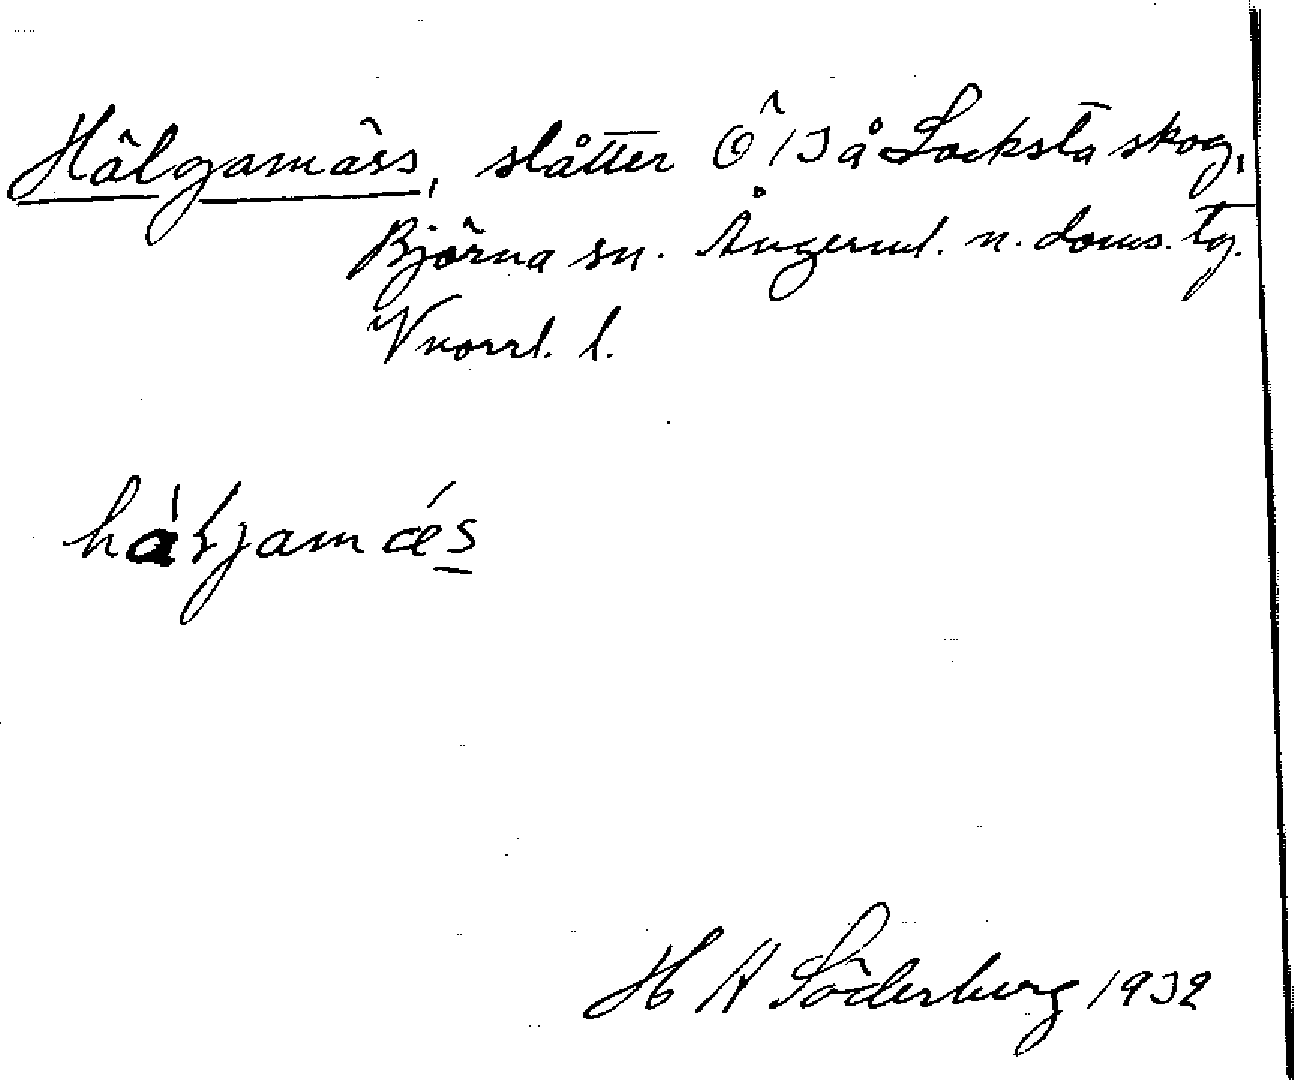 Hälgamäss, slåtter Ö 13 å Locksta skog,
Björna sn. Ångerml. n. doms. tg.
Vnorrl. l.
háljamǽs
H A Söderberg 1932